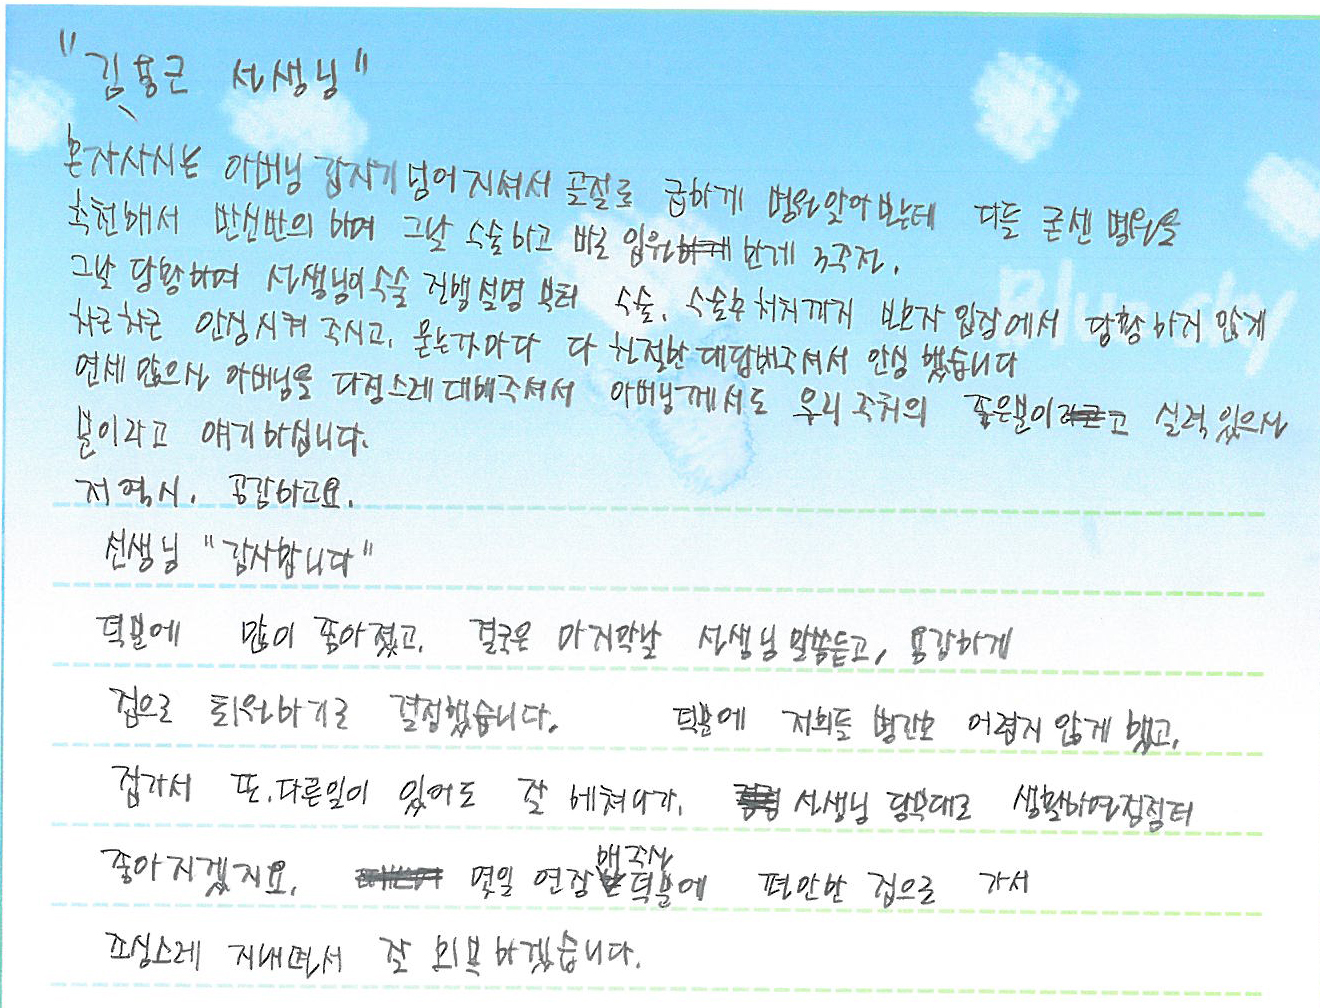 "김용근 선생님"
혼자사시는 아버님 갑자기 넘어지셔서 골절로 급하게 병원알아 봤는데 다들 굳센 병원을
추천해서 반신반의 하며 그날 수술하고 바로 입원한게 3주전.
그날 당황하며 선생님의수술 진행설명 부터 수술, 수술후처치까지 보호자 입장에서 당황하지 않게
차근차근 안심시켜 주시고, 묻는거마다 다 친절한 대답해주셔서 안심 했습니다
연세 많으신 아버님을 다정스레대해주셔서 아버님께서도 우리주위의 좋은분이고 실력있으신
분이라고 얘기하십니다.
저 역시. 공감하고요.
선생님 "감사합니다"
덕분에 많이 좋아졌고, 결국은 마지막날 선생님 말씀듣고, 용감하게
집으로 퇴원하기로 결정했습니다. 덕분에 저희들 병간호 어렵지 않게 했고,
집가서 또.다른일이 있어도 잘 헤쳐나가. 선생님 당부대로 생활하면점점더
좋아지겠지요. 몇일 연장 해주신 덕분에 편안한 집으로 가서
조심스레 지내면서 잘 회복하겠습니다.
Blue sky